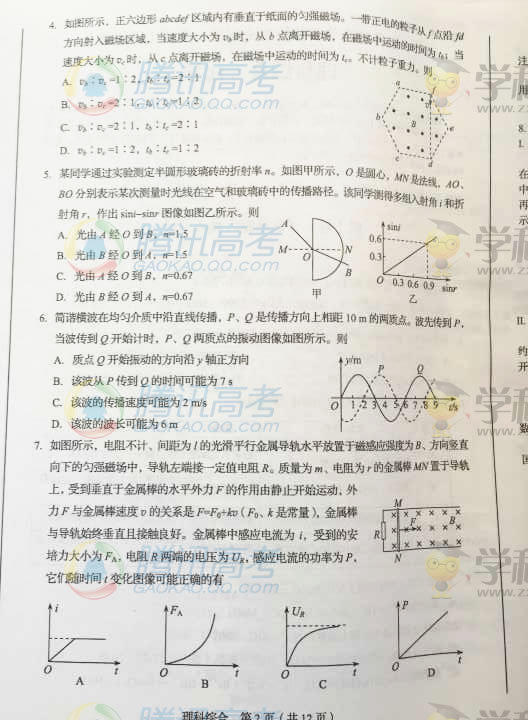 4. 如图所示，正六边形 abcdef 区域内有垂直于纸面的匀强磁场。一带正电的粒子从 f 点沿 fd
方向射入磁场区域，当速度大小为 vb 时，从 b 点离开磁场，在磁场中运动的时间为 tb；当
速度大小为 vc 时，从 c 点离开磁场，在磁场中运动的时间为 tc。不计粒子重力。则
A. vb∶vc=1∶2，tb∶tc=2∶1
B. vb∶vc=2∶1，tb∶tc=1∶2
C. vb∶vc=2∶1，tb∶tc=2∶1
D. vb∶vc=1∶2，tb∶tc=1∶2
a
b
B
e
c
d
5. 某同学通过实验测定半圆形玻璃砖的折射率 n。如图甲所示，O 是圆心，MN 是法线，AO、
BO 分别表示某次测量时光线在空气和玻璃砖中的传播路径。该同学测得多组入射角 i 和折
射角 r，作出 sini–sinr 图像如图乙所示。则
A. 光由 A 经 O 到 B，n=1.5
B. 光由 B 经 O 到 A，n=1.5
C. 光由 A 经 O 到 B，n=0.67
D. 光由 B 经 O 到 A，n=0.67
A
M
O
N
B
甲
sini
0.6
0.3
O
0.3 0.6 0.9 sinr
乙
6. 简谐横波在均匀介质中沿直线传播，P、Q 是传播方向上相距 10 m 的两质点。波先传到 P，
当波传到 Q 开始计时，P、Q 两质点的振动图像如图所示。则
A. 质点 Q 开始振动的方向沿 y 轴正方向
B. 该波从 P 传到 Q 的时间可能为 7 s
C. 该波的传播速度可能为 2 m/s
D. 该波的波长可能为 6 m
y/m
P
Q
O 1 2 3 4 5 6 7 8 9 t/s
7. 如图所示，电阻不计、间距为 l 的光滑平行金属导轨水平放置于磁感应强度为 B、方向竖直
向下的匀强磁场中，导轨左端接一定值电阻 R。质量为 m、电阻为 r 的金属棒 MN 置于导轨
上，受到垂直于金属棒的水平外力 F 的作用由静止开始运动，外
力 F 与金属棒速度 v 的关系是 F=F0+kv（F0、k 是常量），金属棒
与导轨始终垂直且接触良好。金属棒中感应电流为 i，受到的安
培力大小为 FA，电阻 R 两端的电压为 UR，感应电流的功率为 P，
它们随时间 t 变化图像可能正确的有
M
R
F
B
N
i
O
t
A
FA
O
t
B
UR
O
t
C
P
O
t
D
理科综合 第 2 页（共 12 页）
腾讯高考
GAOKAO.QQ.COM
腾讯高考
GAOKAO.QQ.COM
腾讯高考
GAOKAO.QQ.COM
腾讯高考
GAOKAO.QQ.COM
学科
学科
学科
学科
注
用
8.
I.
在
中
再
示
II.
约
开
数
国